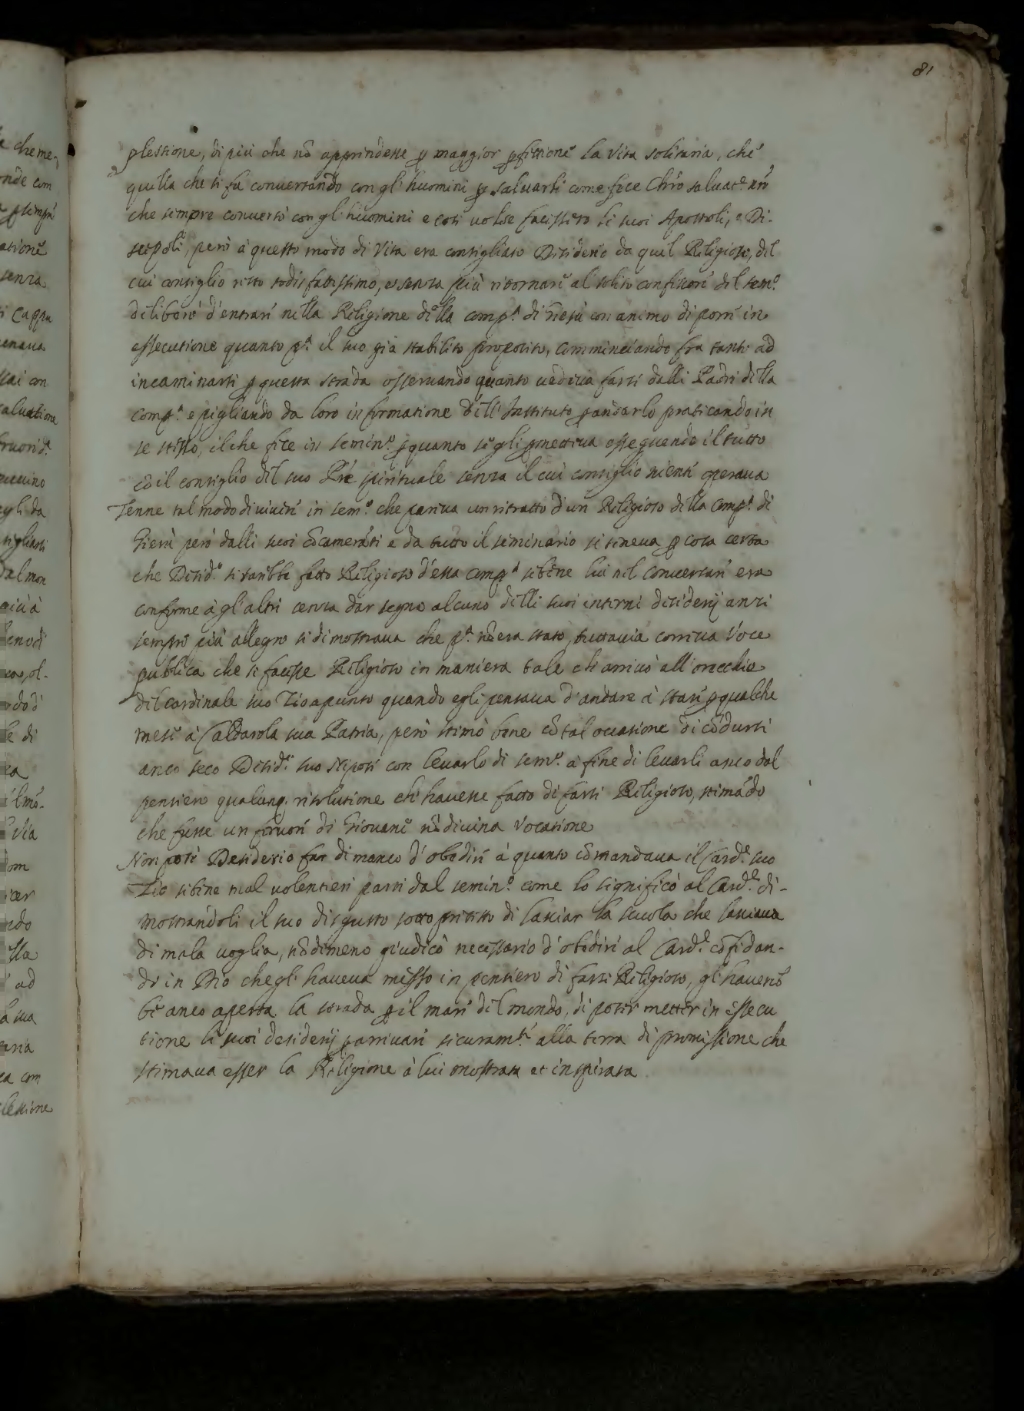 81
plessione, di più che nō apprendesse p maggior pfettione la Vita solitaria, che
quella che si fà conversando con gl'huomini p salvarli come fece Chro salvat.e nrō
che sempre conversò con gl'huomini e così volse facessero li suoi Apostoli, e Di-
scepoli, però à questo modo di Vita era consigliato Desiderio da quel Religioso, del
cui consiglio restò sodisfattissimo, et senza più ritornare al solito confessore del sem.o
deliberò d'entrare nella Religione della Comp.a di Giesù con animo di porre in
essecutione quanto p.a il suo già stabilito proposito, cominciando fra tanto ad
incaminarsi p questa strada osservando quanto vedeva farsi dalli Padri della
Comp.a e pigliando da loro informatione dell'Instituto p andarlo praticando in
se stesso, il che fece in semin.o p quanto se gli pmetteva essequendo il tutto
cō il consiglio del suo Pre spirituale senza il cui consiglio niente operava
Tenne tal modo di vivere in sem.o che pareva un ritratto d'un Religioso della Comp.a di
Giesù però dalli suoi cōcamerati e da tutto il seminario si teneva p cosa certa
che Desid.o si sarebbe fatto Religioso d'essa Comp.a sebene lui nel conversare era
conforme à gl'altri senza dar segno alcuno delli suoi interni desiderij anzi
sempre più allegro si dimostrava che p.a nō era stato, tuttavia correva Voce
publica che si facesse Religioso in maniera tale che arrivò all'orecchie
del Cardinale suo Zio apunto quando egli pensava d'andare à stare p qualche
mese à Caldarola sua Patria, però stimò bene cō tal occasione di cōdursi
anco seco Desid.o suo Nepote con levarlo di sem.o à fine di levarli anco dal
pensiero qualunq. risolutione che havesse fatto di farsi Religioso, stimādo
che fusse un fervore di Giovane nō divina Vocatione
Non potè Desiderio far di manco d'obedire à quanto cōmandava il Card.le suo
Zio sebene mal volentieri partì dal semin.o come lo significò al Card.le di-
mostrandoli il suo disgusto sotto pretesto di lasciar la scuola che lasciava
di mala voglia, nōdimeno giudicò necessario d'obedire al Card.le cōfidan-
do in Dio che gl'haveva messo in pensiero di farsi Religioso, gl'haverē
bè anco aperta la strada p il mare del mondo, di poter metter in essecu
tione li suoi desiderij p arrivare sicuram.te alla terra di promissione che
stimava esser la Religione à lui mostrata et inspirata